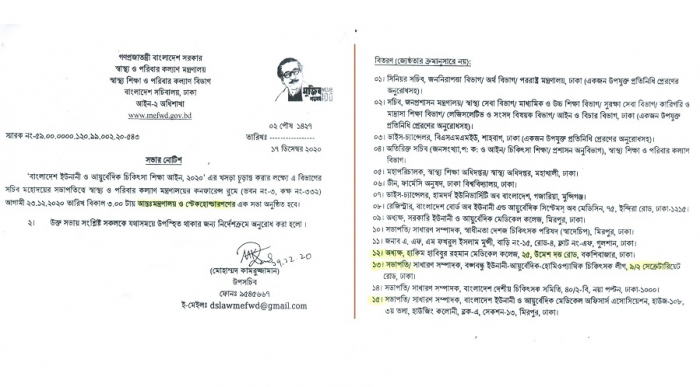 গণপ্রজাতন্ত্রী বাংলাদেশ সরকার
স্বাস্থ্য ও পরিবার কল্যাণ মন্ত্রণালয়
স্বাস্থ্য শিক্ষা ও পরিবার কল্যাণ বিভাগ
বাংলাদেশ সচিবালয়, ঢাকা
আইন-২ অধিশাখা
www.mefwd.gov.bd
মুজিব
শতবর্ষ 100
০২ পৌষ ১৪২৭
স্মারক নং-৫৯.00.0000.১২0.৯৯.00২.২0-৫৪৩
তারিখঃ
১৭ ডিসেম্বর ২০২০
সভার নোটিশ
'বাংলাদেশ ইউনানী ও আয়ুর্বেদিক চিকিৎসা শিক্ষা আইন, ২০২০' এর খসড়া চূড়ান্ত করার লক্ষ্যে এ বিভাগের
সচিব মহোদয়ের সভাপতিত্বে স্বাস্থ্য ও পরিবার কল্যাণ মন্ত্রণালয়ের কনফারেন্স রুমে (ভবন নং-৩, কক্ষ নং-৩৩২)
আগামী ২৩.১২.২০২০ তারিখ বিকাল ৩.০০ টায় আন্তঃমন্ত্রণালয় ও স্টেকহোল্ডারগণের এক সভা অনুষ্ঠিত হবে।
২। উক্ত সভায় সংশ্লিষ্ট সকলকে যথাসময়ে উপস্থিত থাকার জন্য নির্দেশক্রমে অনুরোধ করা হলো।
(মোহাম্মদ কামরুজ্জামান)
উপসচিব
ফোনঃ ৯৫৪৫৬৬৭
ই-মেইলঃ dslawmefwd@gmail.com
বিতরণ (জ্যেষ্ঠতার ক্রমানুসারে নয়):
০১। সিনিয়র সচিব, জননিরাপত্তা বিভাগ/ অর্থ বিভাগ/ পররাষ্ট্র মন্ত্রণালয়, ঢাকা (একজন উপযুক্ত প্রতিনিধি প্রেরণের
অনুরোধসহ)।
০২। সচিব, জনপ্রশাসন মন্ত্রণালয়/ স্বাস্থ্য সেবা বিভাগ/ মাধ্যমিক ও উচ্চ শিক্ষা বিভাগ/ সুরক্ষা সেবা বিভাগ/ কারিগরি ও
মাদ্রাসা শিক্ষা বিভাগ/ লেজিসলেটিভ ও সংসদ বিষয়ক বিভাগ/ আইন ও বিচার বিভাগ, ঢাকা (একজন উপযুক্ত
প্রতিনিধি প্রেরণের অনুরোধসহ)।
০৩। ভাইস-চ্যান্সেলর, বিএসএমএমইউ, শাহবাগ, ঢাকা (একজন উপযুক্ত প্রতিনিধি প্রেরণের অনুরোধসহ)।
০৪। অতিরিক্ত সচিব (জনসংখ্যা,প: ক: ও আইন/ চিকিৎসা শিক্ষা/ প্রশাসন অনুবিভাগ), স্বাস্থ্য শিক্ষা ও পরিবার কল্যাণ
বিভাগ।
০৫। মহাপরিচালক, স্বাস্থ্য শিক্ষা অধিদপ্তর/ স্বাস্থ্য অধিদপ্তর, মহাখালী, ঢাকা।
০৬। ডীন, ফার্মেসি অনুষদ, ঢাকা বিশ্ববিদ্যালয়, ঢাকা।
০৭। ভাইস-চ্যান্সেলর, হামদর্দ ইউনিভার্সিটি অব বাংলাদেশ, গজারিয়া, মুন্সিগঞ্জ।
০৮। রেজিস্ট্রার, বাংলাদেশ বোর্ড অব ইউনানী এন্ড আয়ুর্বেদিক সিস্টেমস্ অব মেডিসিন, ৭৫, ইন্দিরা রোড, ঢাকা-১২১৫।
০৯। অধ্যক্ষ, সরকারি ইউনানী ও আয়ুর্বেদিক মেডিকেল কলেজ, মিরপুর, ঢাকা।
১০। সভাপতি/ সাধারণ সম্পাদক, স্বাধীনতা দেশজ চিকিৎসক পরিষদ (স্বাদেচিপ), মিরপুর, ঢাকা।
১১। জনাব এ, এফ, এম ফখরুল ইসলাম মুন্সী, বাড়ি নং-১৫, রোড-৪, ফ্ল্যাট নং-এফ, গুলশান, ঢাকা।
১২। অধ্যক্ষ, হাকিম হাবিবুর রহমান মেডিকেল কলেজ, ২৫, উমেশ দত্ত রোড, বকশিবাজার, ঢাকা।
১৩। সভাপতি/ সাধারণ সম্পাদক, বঙ্গবন্ধু ইউনানী-আয়ুর্বেদিক-হোমিওপ্যাথিক চিকিৎসক লীগ, ৯/২ সেক্রেটারিয়েট
রোড, ঢাকা।
১৪। সভাপতি/ সাধারণ সম্পাদক, বাংলাদেশ দেশীয় চিকিৎসক সমিতি, ৪০/২-বি, নয়া পল্টন, ঢাকা-১০০০।
১৫। সভাপতি/ সাধারণ সম্পাদক, বাংলাদেশ ইউনানী ও আয়ুর্বেদিক মেডিকেল অফিসার্স এসোসিয়েশন, হাউজ-১০৮,
৩য় তলা, হাউজিং কলোনী, ব্লক-এ, সেকশন-১৩, মিরপুর, ঢাকা।